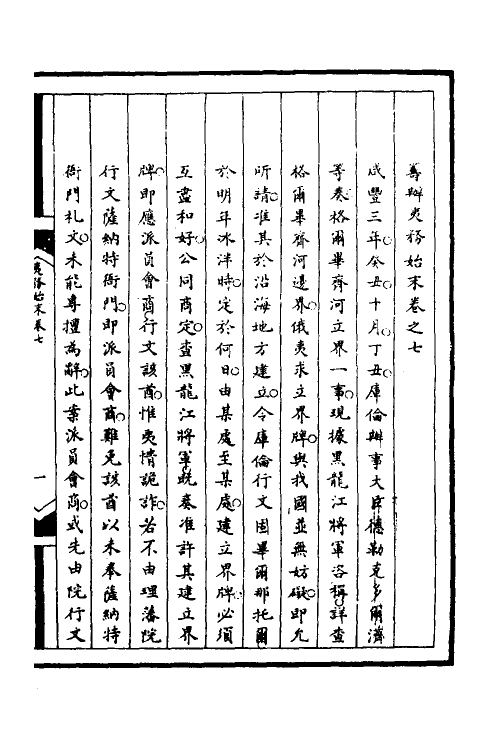 籌辦夷務始末卷之七
咸豐三年癸丑十月丁丑庫倫辦事大臣德勒克多爾濟
等奏格爾畢齊河立界一事現據黑龍江將軍咨稱詳查
格爾畢齊河邊界俄夷求立界牌與我國並無妨礙即允
所請准其於沿海地方建立令庫倫行文固畢爾那托爾
於明年冰泮時定於何日由某處至某處建立界牌必須
互盡和好公同商定查黑龍江將軍旣奏准許其建立界
牌即應派員會商行文該酋惟夷情詭詐若不由理藩院
行文薩納特衙門即派員會商難免該酋以未奉薩納特
衙門札文未能專擅為辭此案派員會商或先由院行文
夷務始末卷七
一